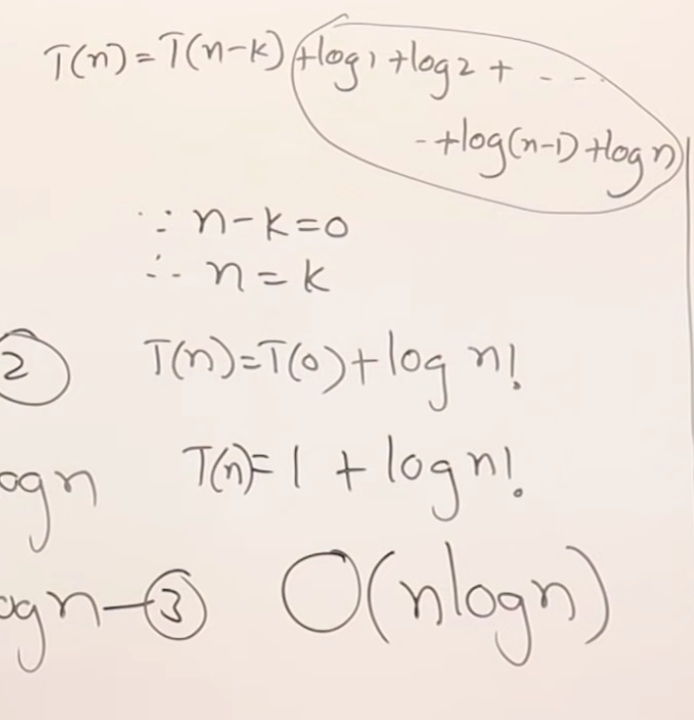 T(n)=T(n-k)+log1+log2+ - - -
- +log(n-1)+log n
∵ n-k=0
∴ n=k
2 T(n)=T(0)+log n!
ogn T(n)=1+log n!
ogn-3 O(nlogn)